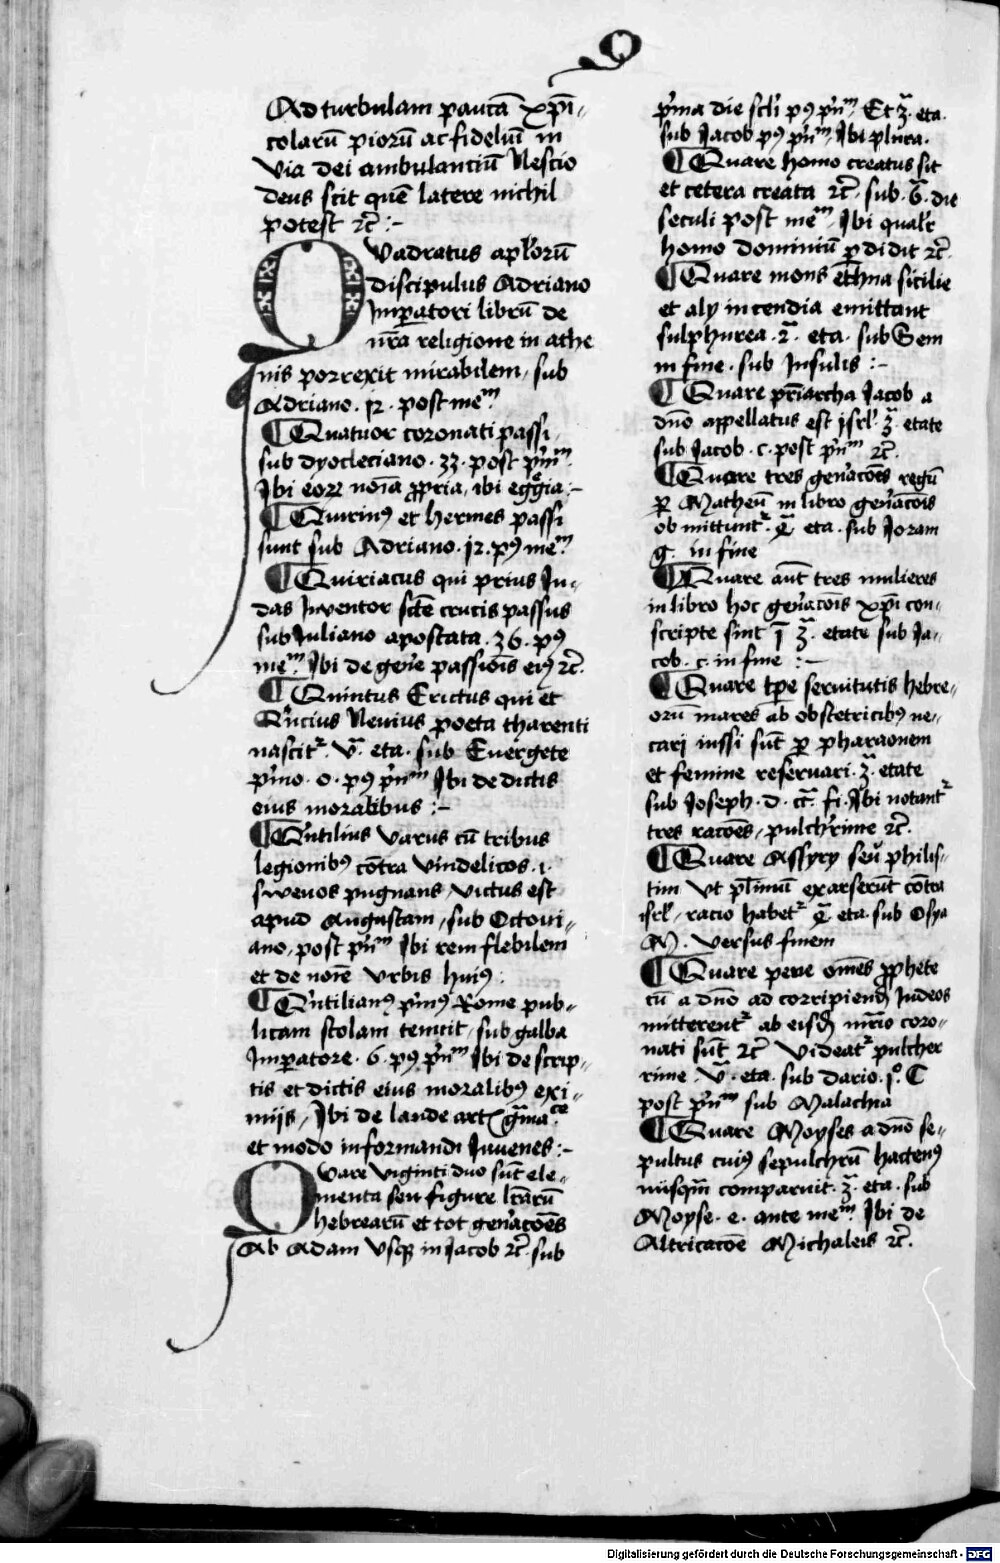 Q
Ad turbulam paucā xp̄i-
colarū piorū ac fideliū in
via dei ambulanciū Nescio
deus scit quē latere nichil
potest ⁊c̄ :-
Quadratus apl'orū
discipulus Adriano
Imꝑatori librū de
nr̄a religione in athe
nis porrexit mirabilem, sub
Adriano . 12 . post meᵐ
¶ Quatuor coronati passi
sub dyocleciano . 33 . post p̄nᵐ
Ibi eoꝝ noīa ꝓpria, ibi
¶ Quirinꝰ et hermes passi
sunt sub Adriano . 12 . pꝰ meᵐ
¶ Quiriacus qui prius Iu-
das Inventor sct̄e crucis passus
sub Iuliano apostata . 36 . pꝰ
meᵐ Ibi de gen'e passiōis eiꝰ ⁊c̄.
¶ Quintus Erictus qui et
Q'ncius Nevius poeta tharenti
nascitᷣ . v̄ . eta . sub Euergete
p'mo . o . pꝰ p̄nᵐ Ibi de dictis
eius moralibus :-
¶ Q'ntilius varus cū tribus
legionibꝰ cōtra vindelicos .i.
swevos pugnans, victus est
apud Augustam, sub Octoui-
ano, post p̄nᵐ Ibi rem flebilem
et de noīe vrbis huiꝰ :
¶ Q'ntilianꝰ p'mꝰ Rome pub-
licam scolam tenuit, sub galba
Imꝑatore . 6 . pꝰ p̄nᵐ Ibi de scrip-
tis et dictis eius moralibꝰ exi-
mijs, Ibi de laude art' gᷓmaᶜᵉ
et modo informandi Iuvenes :-
Quare viginti duo sūt ele-
menta seu figure lr̄arū
hebrearū et tot gen'acōes
Ab Adam vsqꝫ in Iacob ⁊c̄ . sub
p'ma die scl'i pꝰ p̄nᵐ, Et 3ᷓ . eta .
sub Iacob pꝰ p̄nᵐ, Ibi pl'ura .
¶ Quare homo creatus sit
et cetera creata ⁊c̄ . sub . 6 . die
seculi post meᵐ, Ibi qual'r
homo dominiū ꝑdidit ⁊c̄.
¶ Quare mons ethna sicilie
et alij incendia emittant
sulphurea . 2ᷓ . eta . sub Sem
in fine . sub Insulis :-
¶ Quare pr̄iarcha Iacob a
dn̄o appellatus est isrl' . 3ᷓ . etate
sub Iacob . c . post p̄nᵐ ⁊c̄.
¶ Quare tres gen'acōes regū
ꝑ Matheū in libro gen'acōis
obmittuntᷣ . 4ᷓ eta . sub Ioram
g . in fine
¶ Quare aūt tres mulieres
in libro hoc gen'acōis xp̄i con-
scripte sint ī 3ᷓ . etate sub Ia-
cob . c . in fine :-
¶ Quare tp̄e seruitutis hebre-
orū mares ab obstetricibꝰ ne-
cari iussi sūt ꝑ pharaonem
et femine reseruari . 3ᷓ . etate
sub Ioseph . d . fi . Ibi notantᷣ
tres racōes, pulch'rime ⁊c̄.
¶ Quare Assyrij seu philis-
tim vt pl'imū exarserūt cōtra
isrl', racio habetᷣ 4ᷓ eta . sub Osya
M . versus finem
¶ Quare pene om̄es ꝓphete
cū a dn̄o ad corripiend' Iudeos
mitterentᷣ ab eisd' mr̄io coro-
nati sūt ⁊c̄ videatᷣ pulcher
rime . v̄ . eta . sub dario . 1º C
post p̄nᵐ sub Malachia
¶ Quare Moyses a dn̄o se-
pultus cuiꝰ sepulchrū hactenꝰ
nusqm̄ comparuit . 3ᷓ . eta . sub
Moyse . e . ante meᵐ Ibi de
Altricacōe Michaelis ⁊c̄.
Digitalisierung gefördert durch die Deutsche Forschungsgemeinschaft - DFG